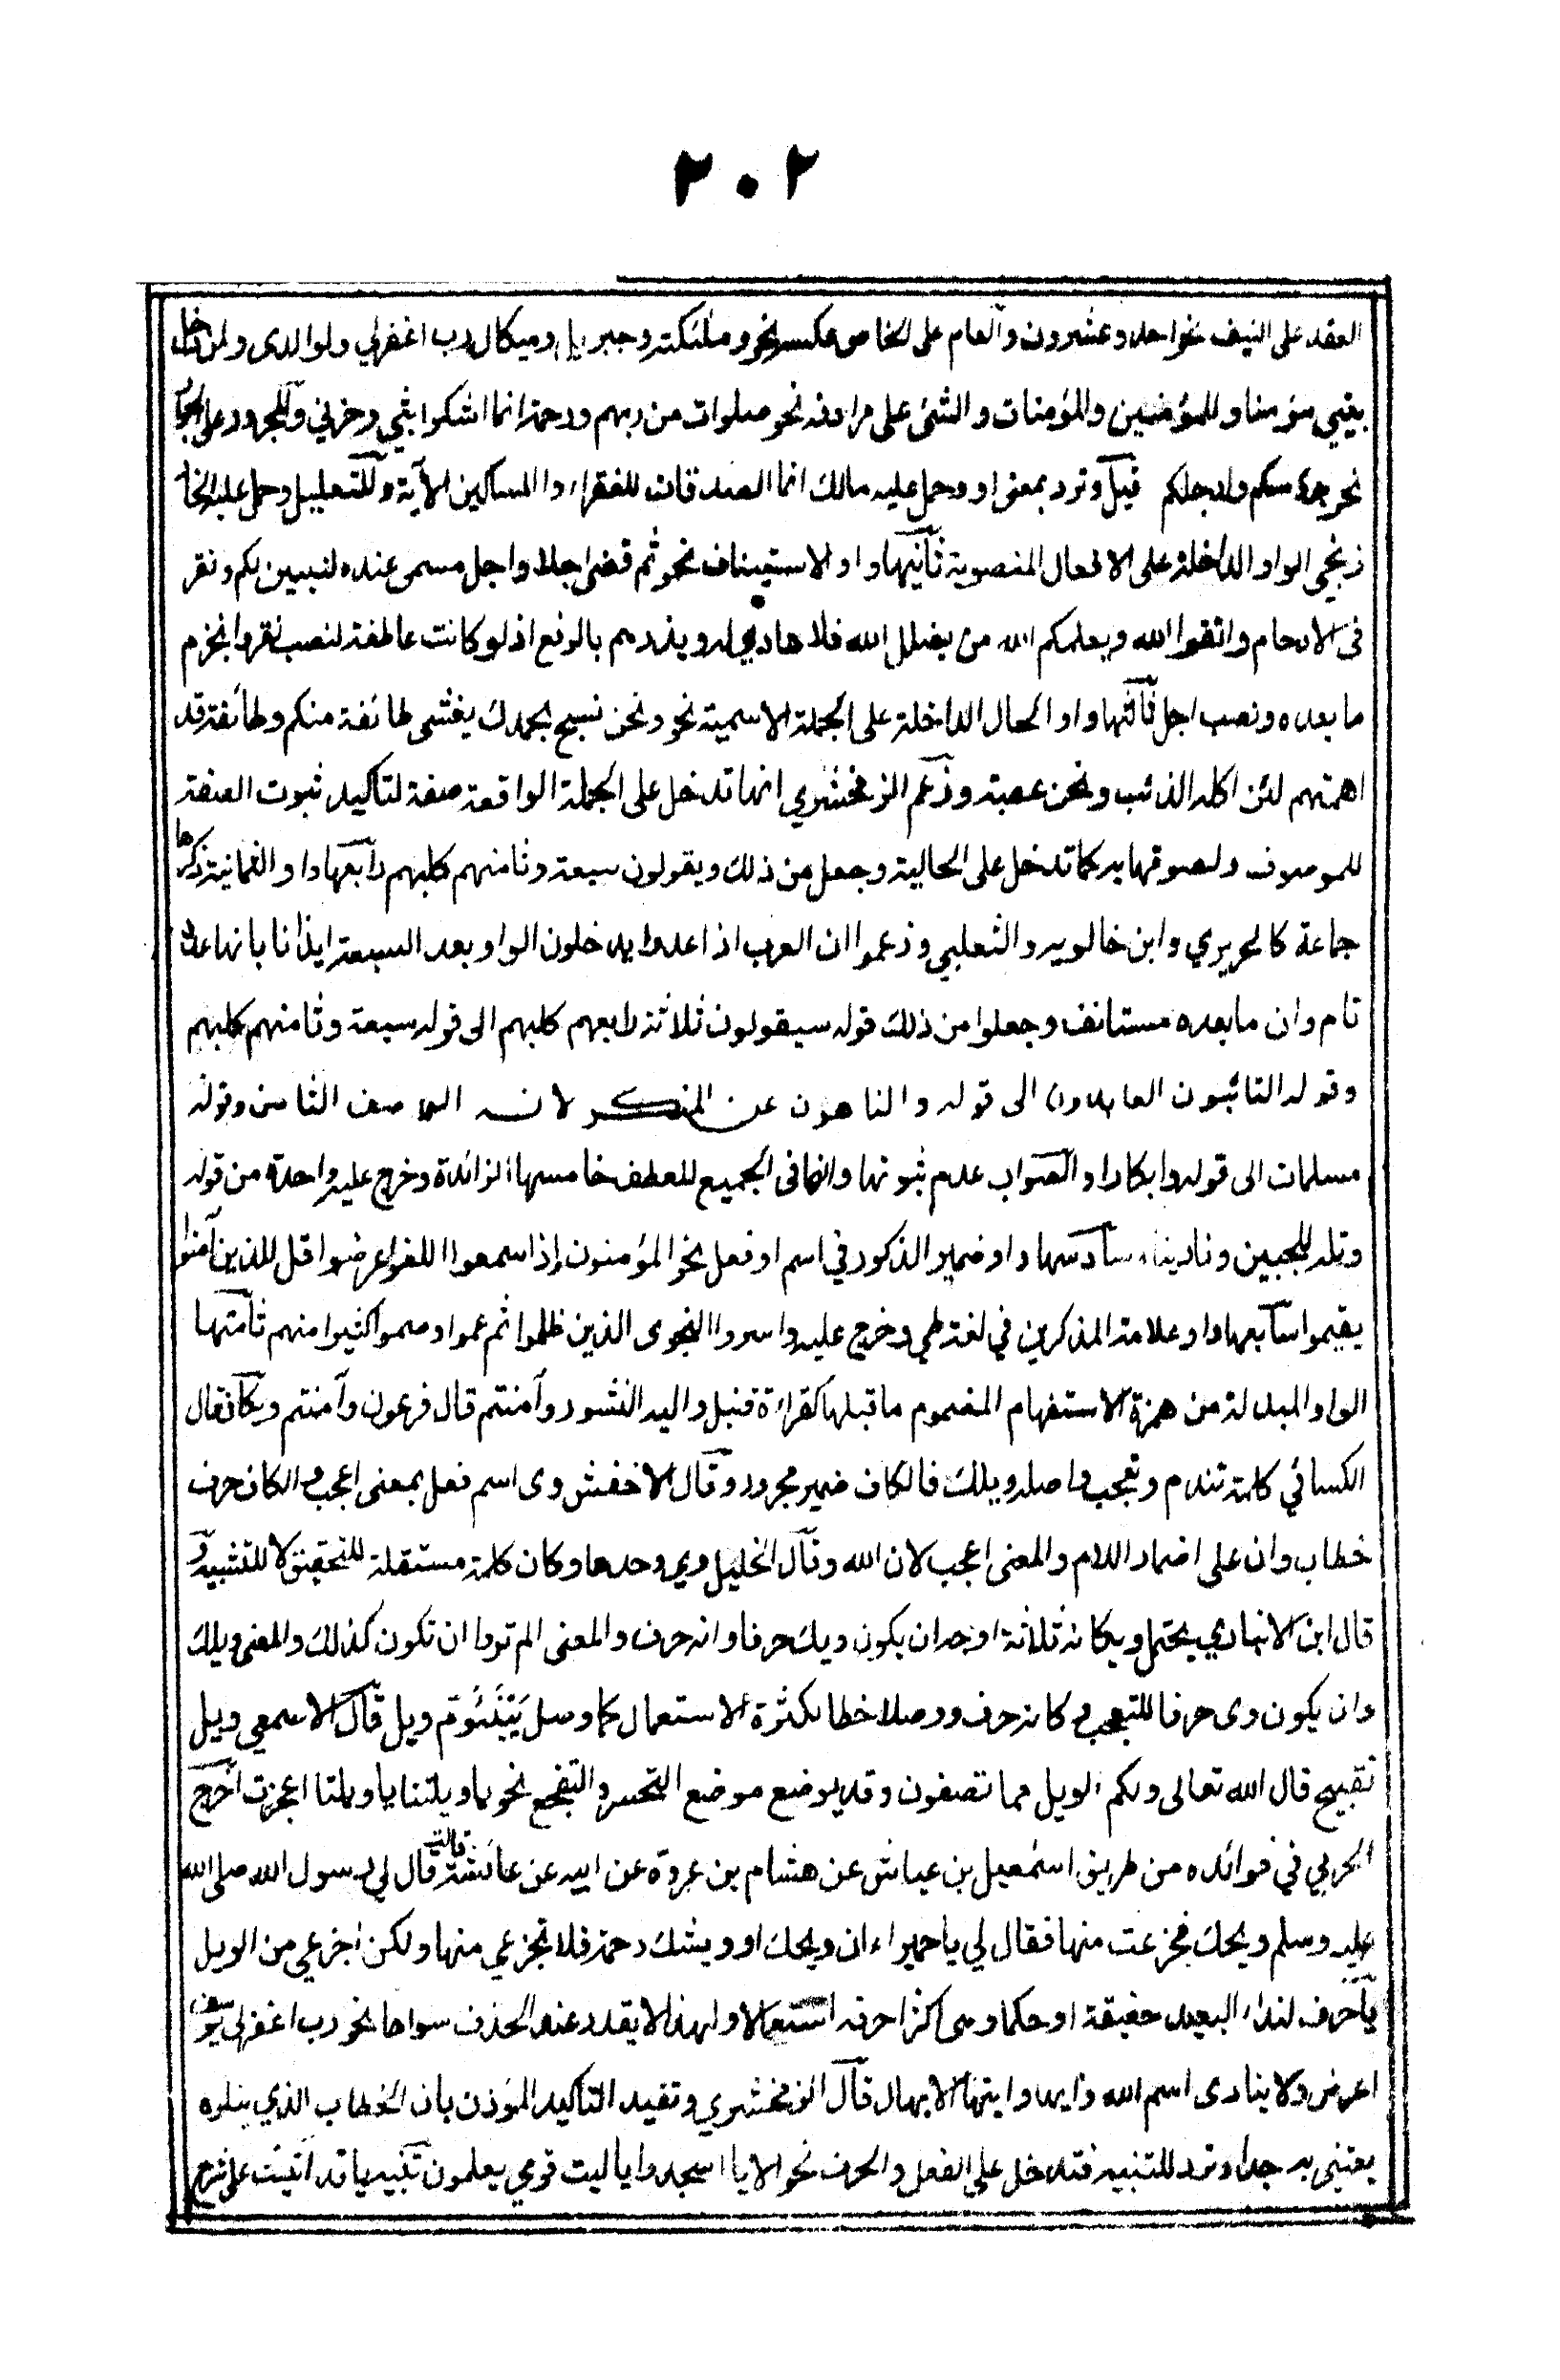 ٢٠٢
العقد على النيف نحو احد وعشرون والعام على الخاص عكسه نحو وملئكته وجبريل وميكال رب اغفرلي ولوالدى ولمن دخل
بيتي مؤمنا وللمؤمنين والمؤمنات والشئ على مرادفه نحو صلوات من ربهم ورحمة انما اشكوا بثي وحزني والمجرور على الجوار
نحو برؤسكم وارجلكم قيل وترد بمعنى او وحمل عليه مالك انما الصدقات للفقراء والمساكين الآية وللتعليل وحمل عليه الخا
رزنجي الواو الداخلة على الافعال المنصوبة ثانيها واو الاستيناف نحو ثم قضى اجلا واجل مسمى عنده لنبين لكم ونقر
فى الارحام واتقوا الله ويعلمكم الله من يضلل الله فلا هادي له ويذرهم بالرفع اذ لو كانت عاطفة لنصب نقر وانجزم
ما بعده ونصب اجل ثالثها واو الحال الداخلة على الجملة الاسمية نحو ونحن نسبح بحمدك يغشى طائفة منكم وطائفة قد
اهمتهم لئن اكله الذئب ونحن عصبة وزعم الزمخشري انها تدخل على الجملة الواقعة صفة لتاكيد ثبوت الصفة
للموصوف ولصوقها به كما تدخل على الحالية وجعل من ذلك ويقولون سبعة وثامنهم كلبهم رابعها واو الثمانية ذكرها
جماعة كالحريري وابن خالويه والثعلبي وزعموا ان العرب اذا عدوا يدخلون الواو بعد السبعة ايذانا بانها عدد
تام وان ما بعده مستانف وجعلوا من ذلك قوله سيقولون ثلاثة رابعهم كلبهم الى قوله سبعة وثامنهم كلبهم
وقوله التائبون العابدون الى قوله والناهون عن المنكر لانه الوصف الثامن وقوله
مسلمات الى قوله وابكارا والصواب عدم ثبوتها وانها فى الجميع للعطف خامسها الزائدة وخرج عليه واحدة من قوله
وتله للجبين وناديناه سادسها واو ضمير الذكور في اسم او فعل نحو المؤمنون إذا سمعوا اللغو اعرضوا قل للذين آمنوا
يقيموا سابعها واو علامة المذكرين في لغة طي وخرج عليه واسروا النجوى الذين ظلموا ثم عموا وصموا كثير منهم ثامنها
الواو المبدلة من همزة الاستفهام المضموم ما قبلها كقراءة قنبل واليه النشور وآمنتم قال فرعون وآمنتم ويكان قال
الكسائي كلمة تندم وتعجب واصله ويلك فالكاف ضمير مجرور وقال الاخفش وى اسم فعل بمعنى اعجب والكاف حرف
خطاب وان على اضمار اللام والمعنى اعجب لان الله وقال الخليل وي وحدها وكان كلمة مستقلة للتحقيق لا للتشبيه و
قال ابن الانباري يحتمل ويكانه ثلاثة اوجه ان يكون ويك حرفا وانه حرف والمعنى الم تروا ان تكون كذلك والمعنى ويلك
وان يكون وى حرفا للتعجب وكانه حرف ووصلا خطا لكثرة الاستعمال كما وصل يَبْنَؤُمّ ويل قال الاصمعي ويل
تقبيح قال الله تعالى ولكم الويل مما تصفون وقد يوضع موضع التحسر والتفجع نحو ياويلتنا ياويلتا اعجزت اخرج
الحربي في فوائده من طريق اسمعيل بن عياش عن هشام بن عروة عن ابيه عن عائشة قالت قال لي رسول الله صلى الله
عليه وسلم ويحك فجزعت منها فقال لي ياحميراء ان ويحك او ويشك رحمة فلا تجزعي منها ولكن اجزعي من الويل
يا حرف لنداء البعيد حقيقة او حكما وهى اكثر احرفه استعمالا ولهذا لا يقدر عند الحذف سواها نحو رب اغفرلي يوسف
اعرض ولا ينادى اسم الله وايها وايتها الا بها قال الزمخشري وتفيد التاكيد المؤذن بان الخطاب الذي يتلوه
يعتنى به جدا وترد للتنبيه فتدخل على الفعل والحرف نحو الا يا اسجدوا ياليت قومي يعلمون تنبيه ها قد اتيت على شرح